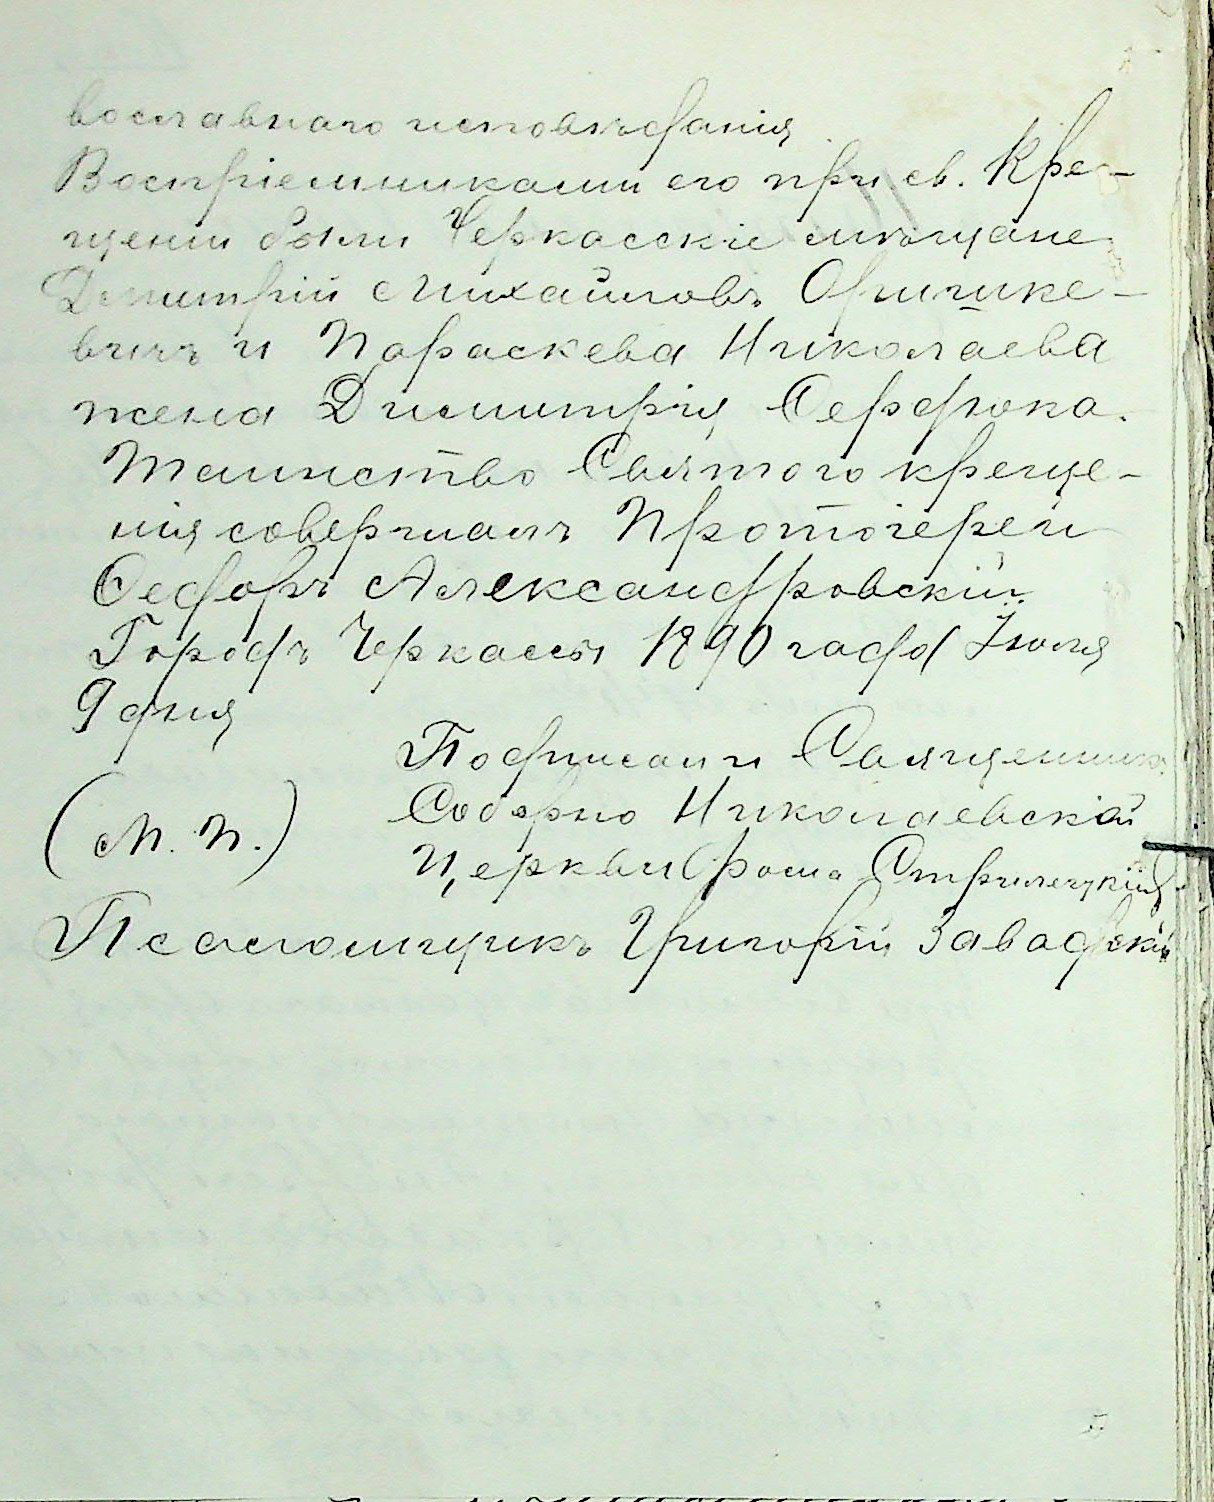 вославнаго исповѣданія
Воспріемниками его при св. Кре-
щеніи были Черкасскіе мѣщане
Димитрій Михайловъ Оришке-
вичъ и Параскева Николаева
жена Димитрія Сердюка.
Таинство Святого креще-
нія совершалъ Протоіерей
Ѳедоръ Александровскій.
Городъ Черкассы 1890 года Іюля
9 дня
Подписали Священник
Соборно Николаевской
(М. П.)
Церкви Фома Стрилецкій
Псаломщикъ Григорій Завадскій